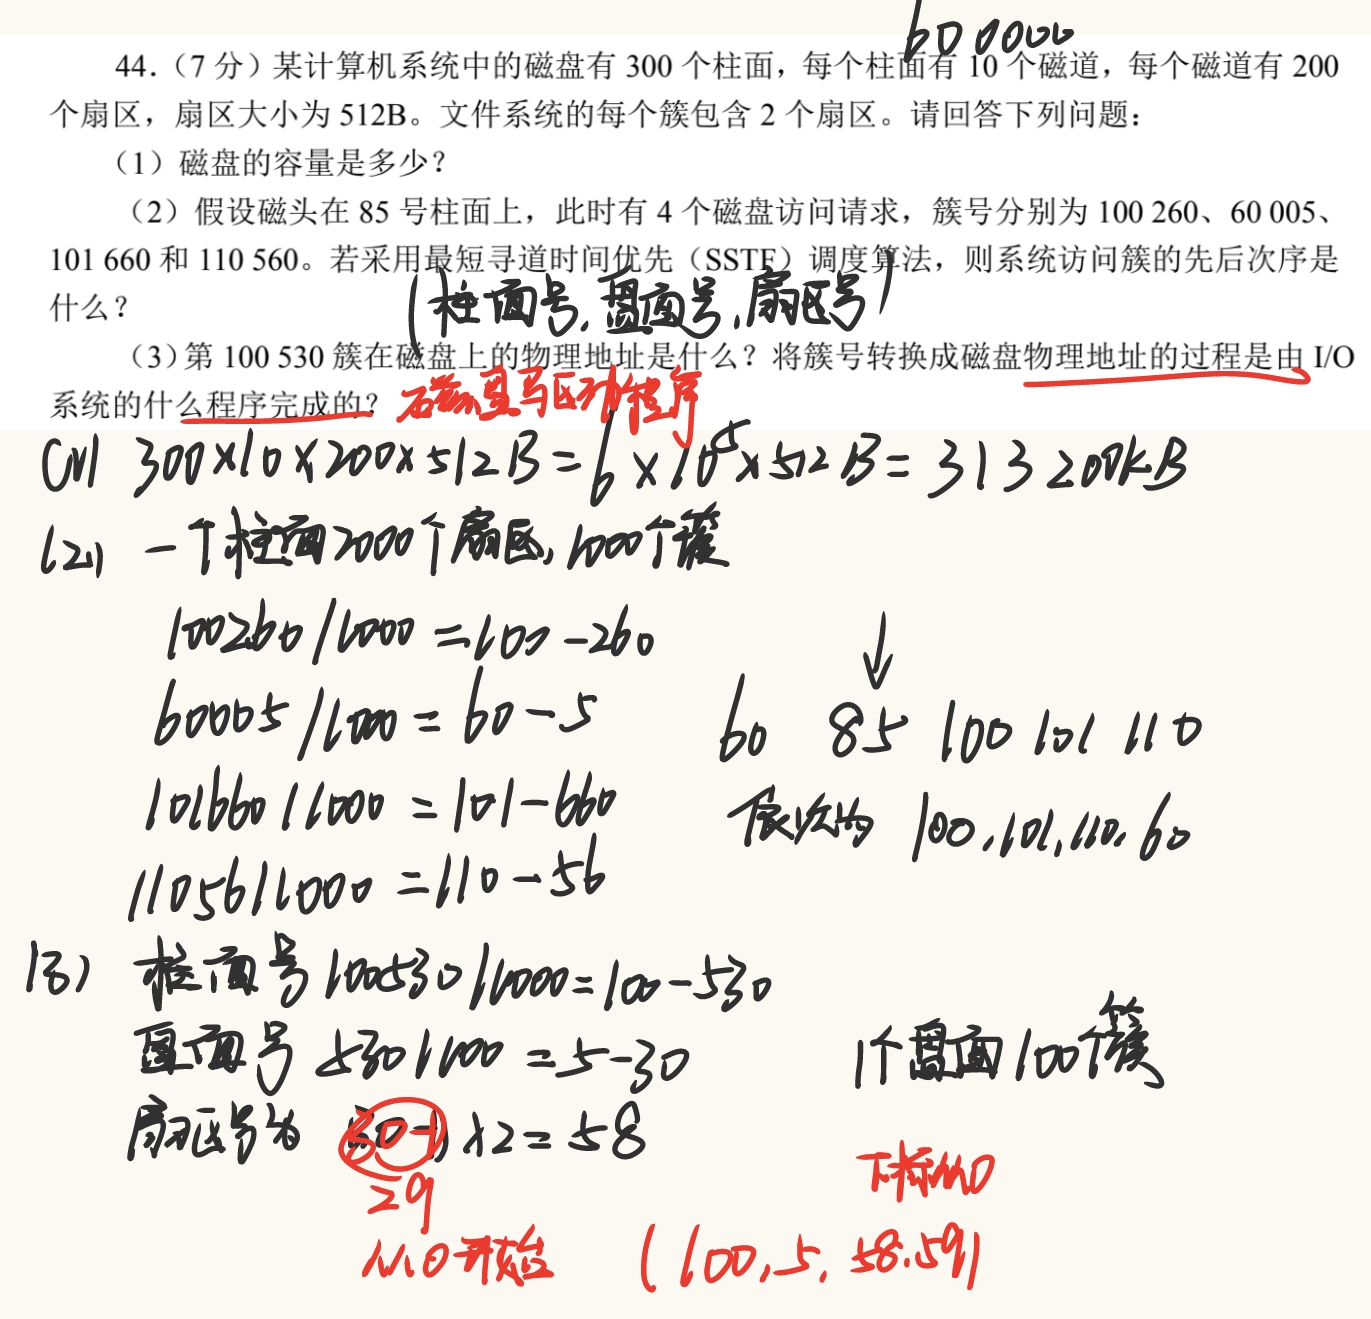 600000
44.（7 分）某计算机系统中的磁盘有 300 个柱面，每个柱面有 10 个磁道，每个磁道有 200
个扇区，扇区大小为 512B。文件系统的每个簇包含 2 个扇区。请回答下列问题：
（1）磁盘的容量是多少？
（2）假设磁头在 85 号柱面上，此时有 4 个磁盘访问请求，簇号分别为 100 260、60 005、
101 660 和 110 560。若采用最短寻道时间优先（SSTF）调度算法，则系统访问簇的先后次序是
什么？
(柱面号,盘面号,扇区号)
（3）第 100 530 簇在磁盘上的物理地址是什么？将簇号转换成磁盘物理地址的过程是由 I/O
系统的什么程序完成的？ 磁盘驱动程序
(1) 300×10×200×512B=6×10⁵×512B=313200KB
(2) 一个柱面2000个扇区,1000个簇
100260/1000=100-260
60005/1000=60-5
60 ↓85 100 101 110
101660/1000=101-660
依次为 100,101,110,60
11056/1000=110-56
(3) 柱面号100530/1000=100-530
盘面号 530/100=5-30 1个盘面100个簇
扇区号为 (30-1)×2=58
29
下标从0
从0开始 (100,5,58.59)